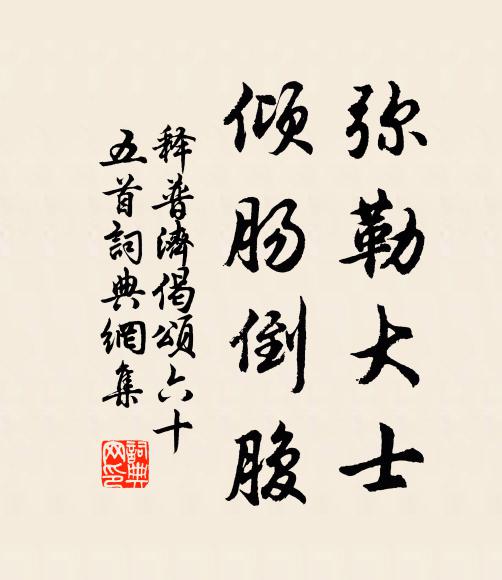 弥勒大士
倾肠倒腹
释普濟偈頌六十
五首詞典網集
詞典网印